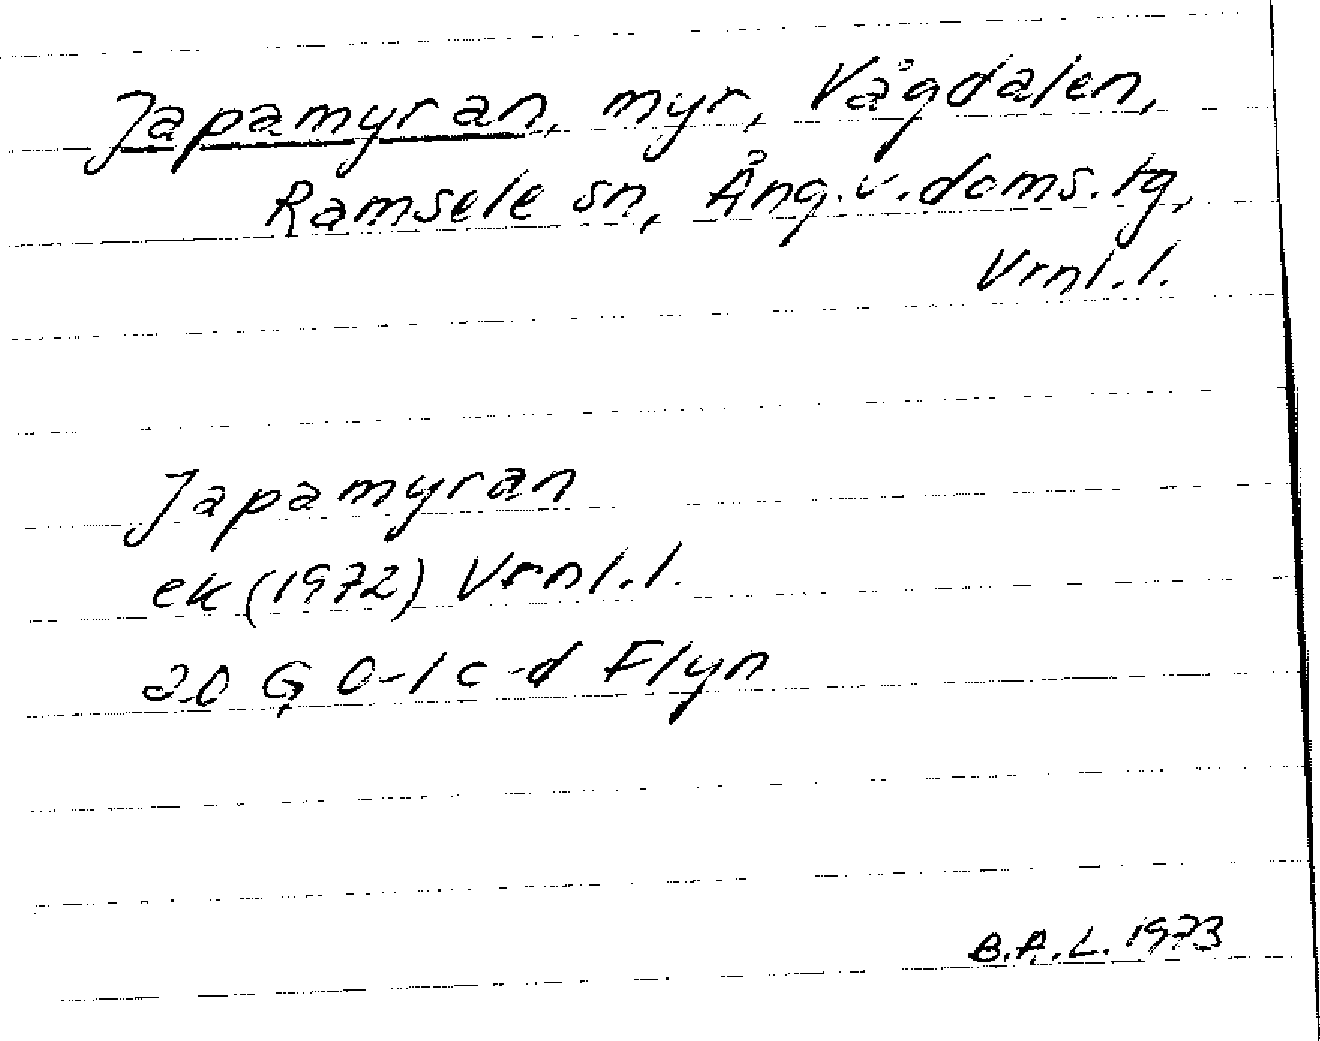 Japamyran, myr, Vågdalen,
Ramsele sn, Ång.v.doms.tg,
Vrnl.l.
Japamyran
ek (1972) Vrnl.l.
20 G 0-1 c-d Flyn
B.A.L. 1973